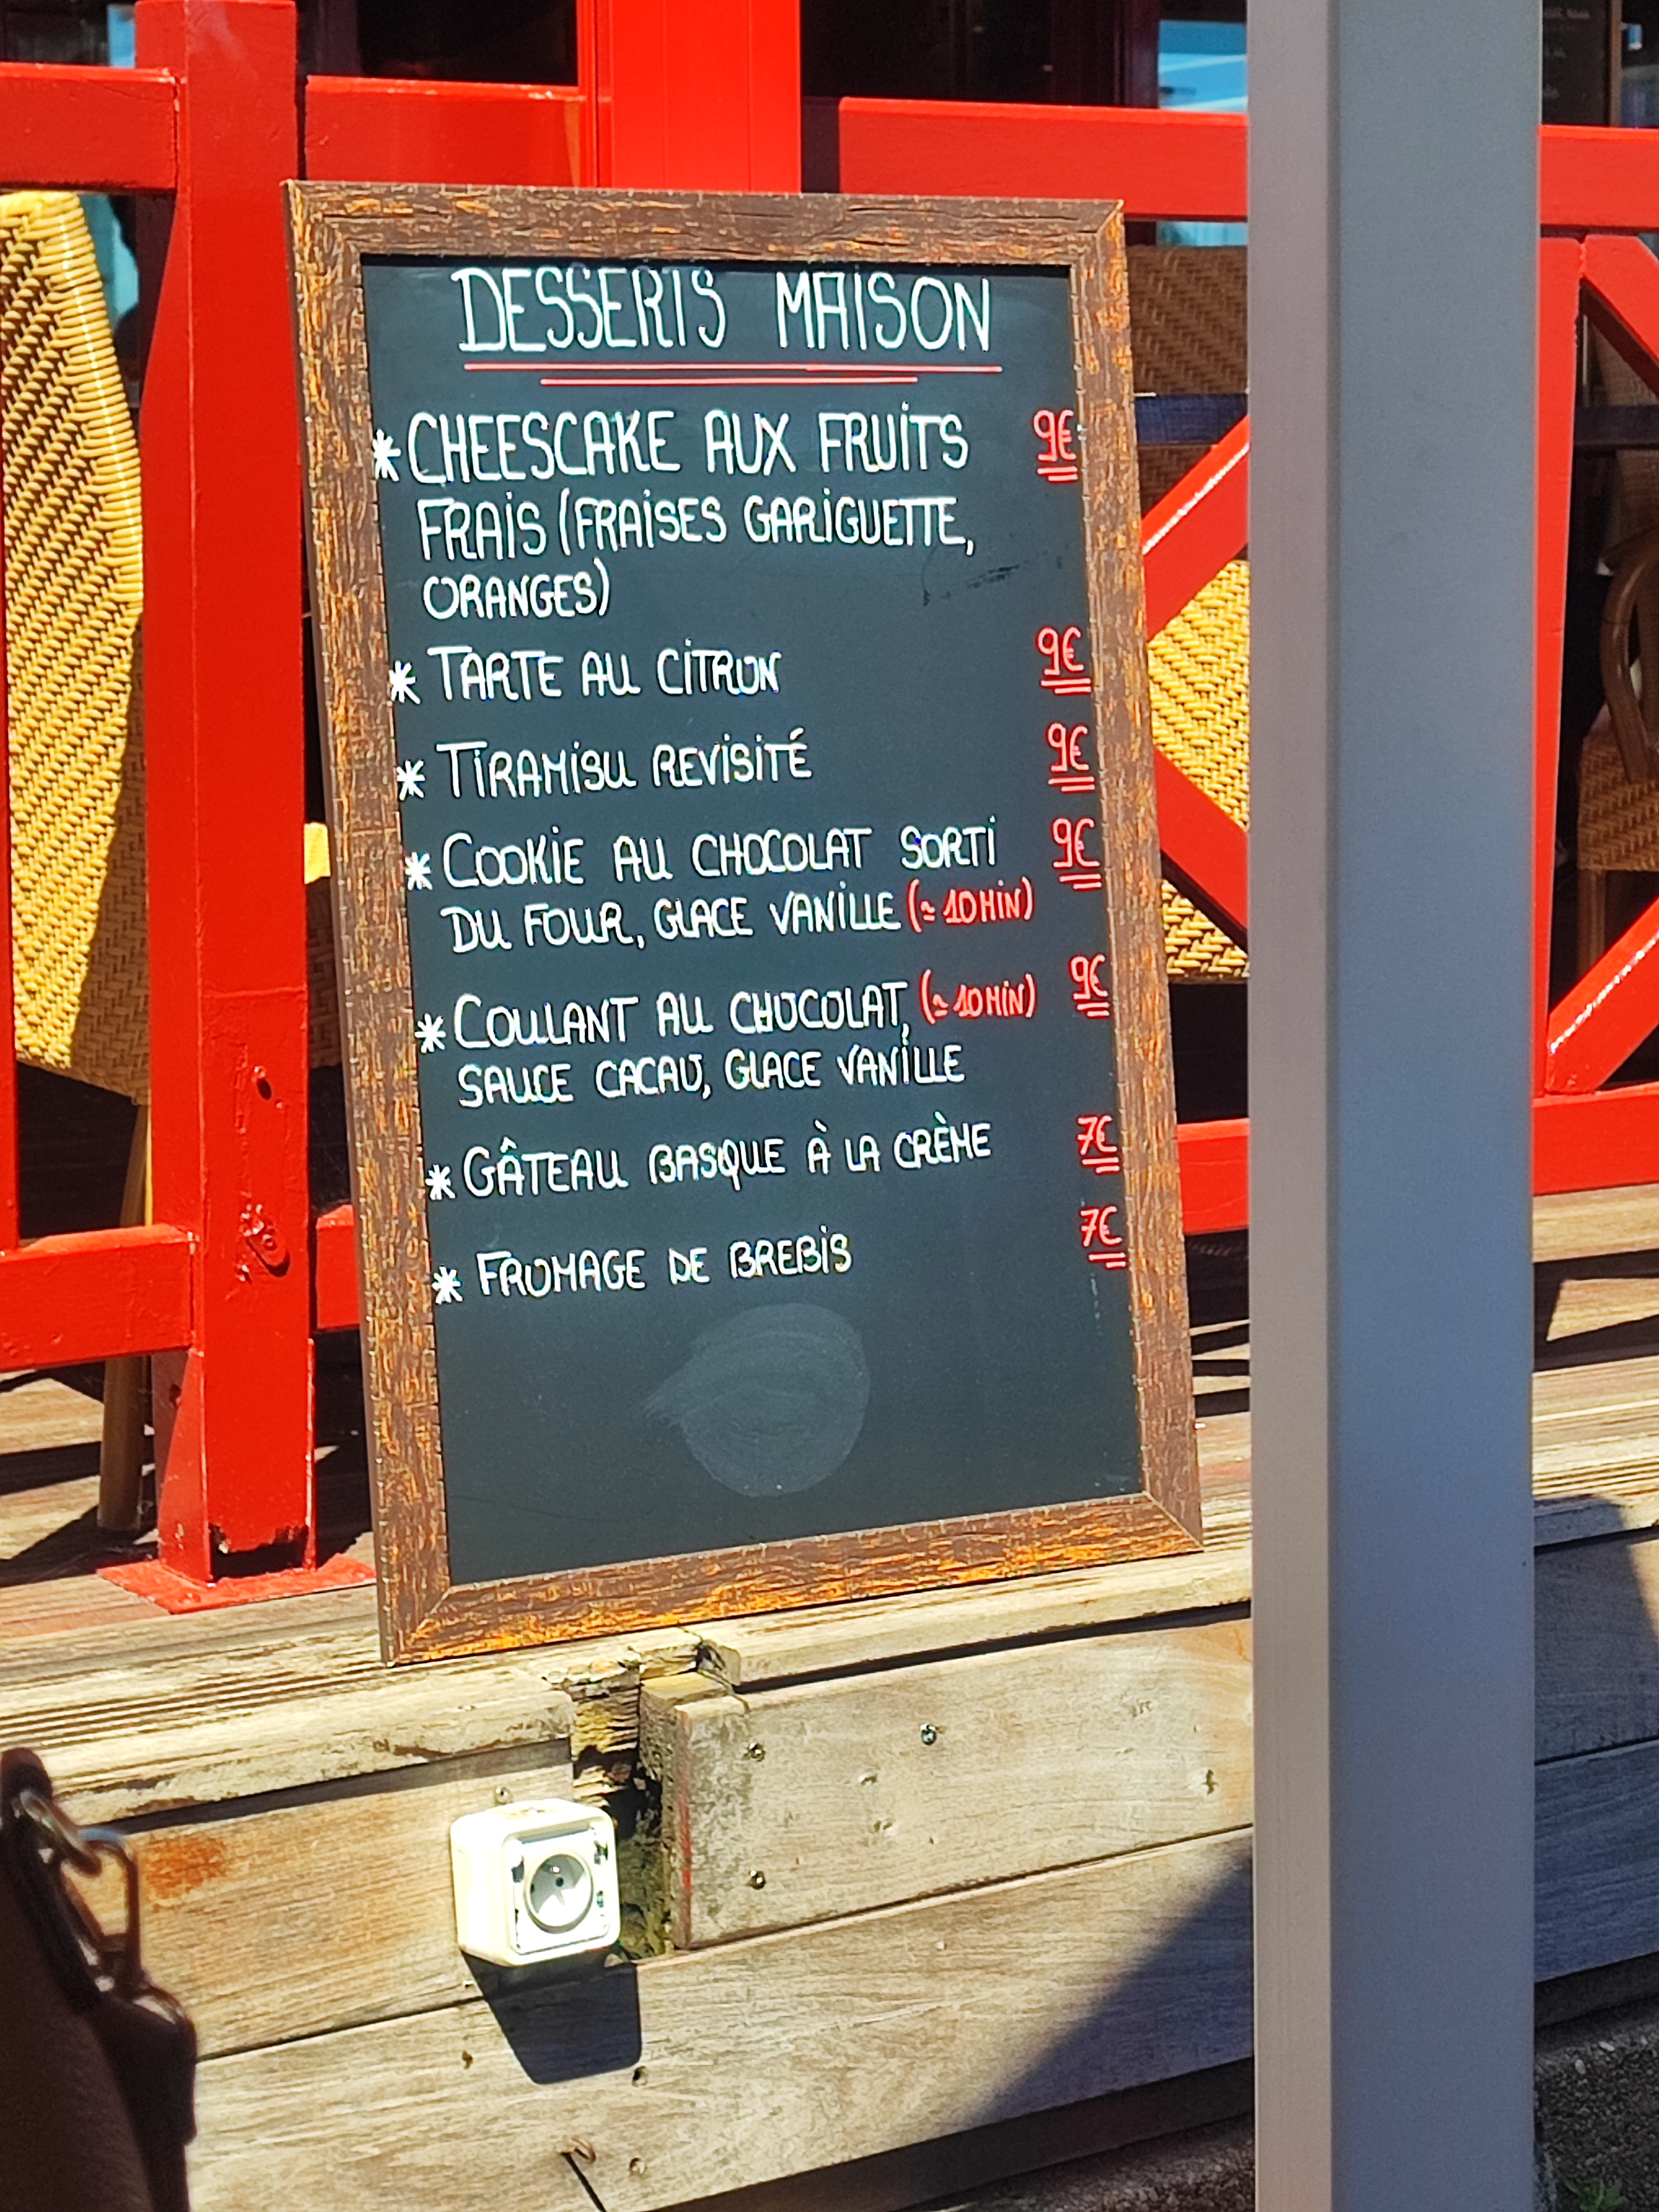 DESSERTS MAISON
* CHEESCAKE AUX FRUITS 9€
FRAIS (FRAISES GARIGUETTE,
ORANGES)
* TARTE AU CITRON 9€
* TIRAMISU REVISITÉ 9€
* COOKIE AU CHOCOLAT SORTI 9€
DU FOUR, GLACE VANILLE (≃ 10 MIN)
* COULANT AU CHOCOLAT, (≃ 10 MIN) 9€
SAUCE CACAO, GLACE VANILLE
* GÂTEAU BASQUE À LA CRÈME 7€
* FROMAGE DE BREBIS 7€